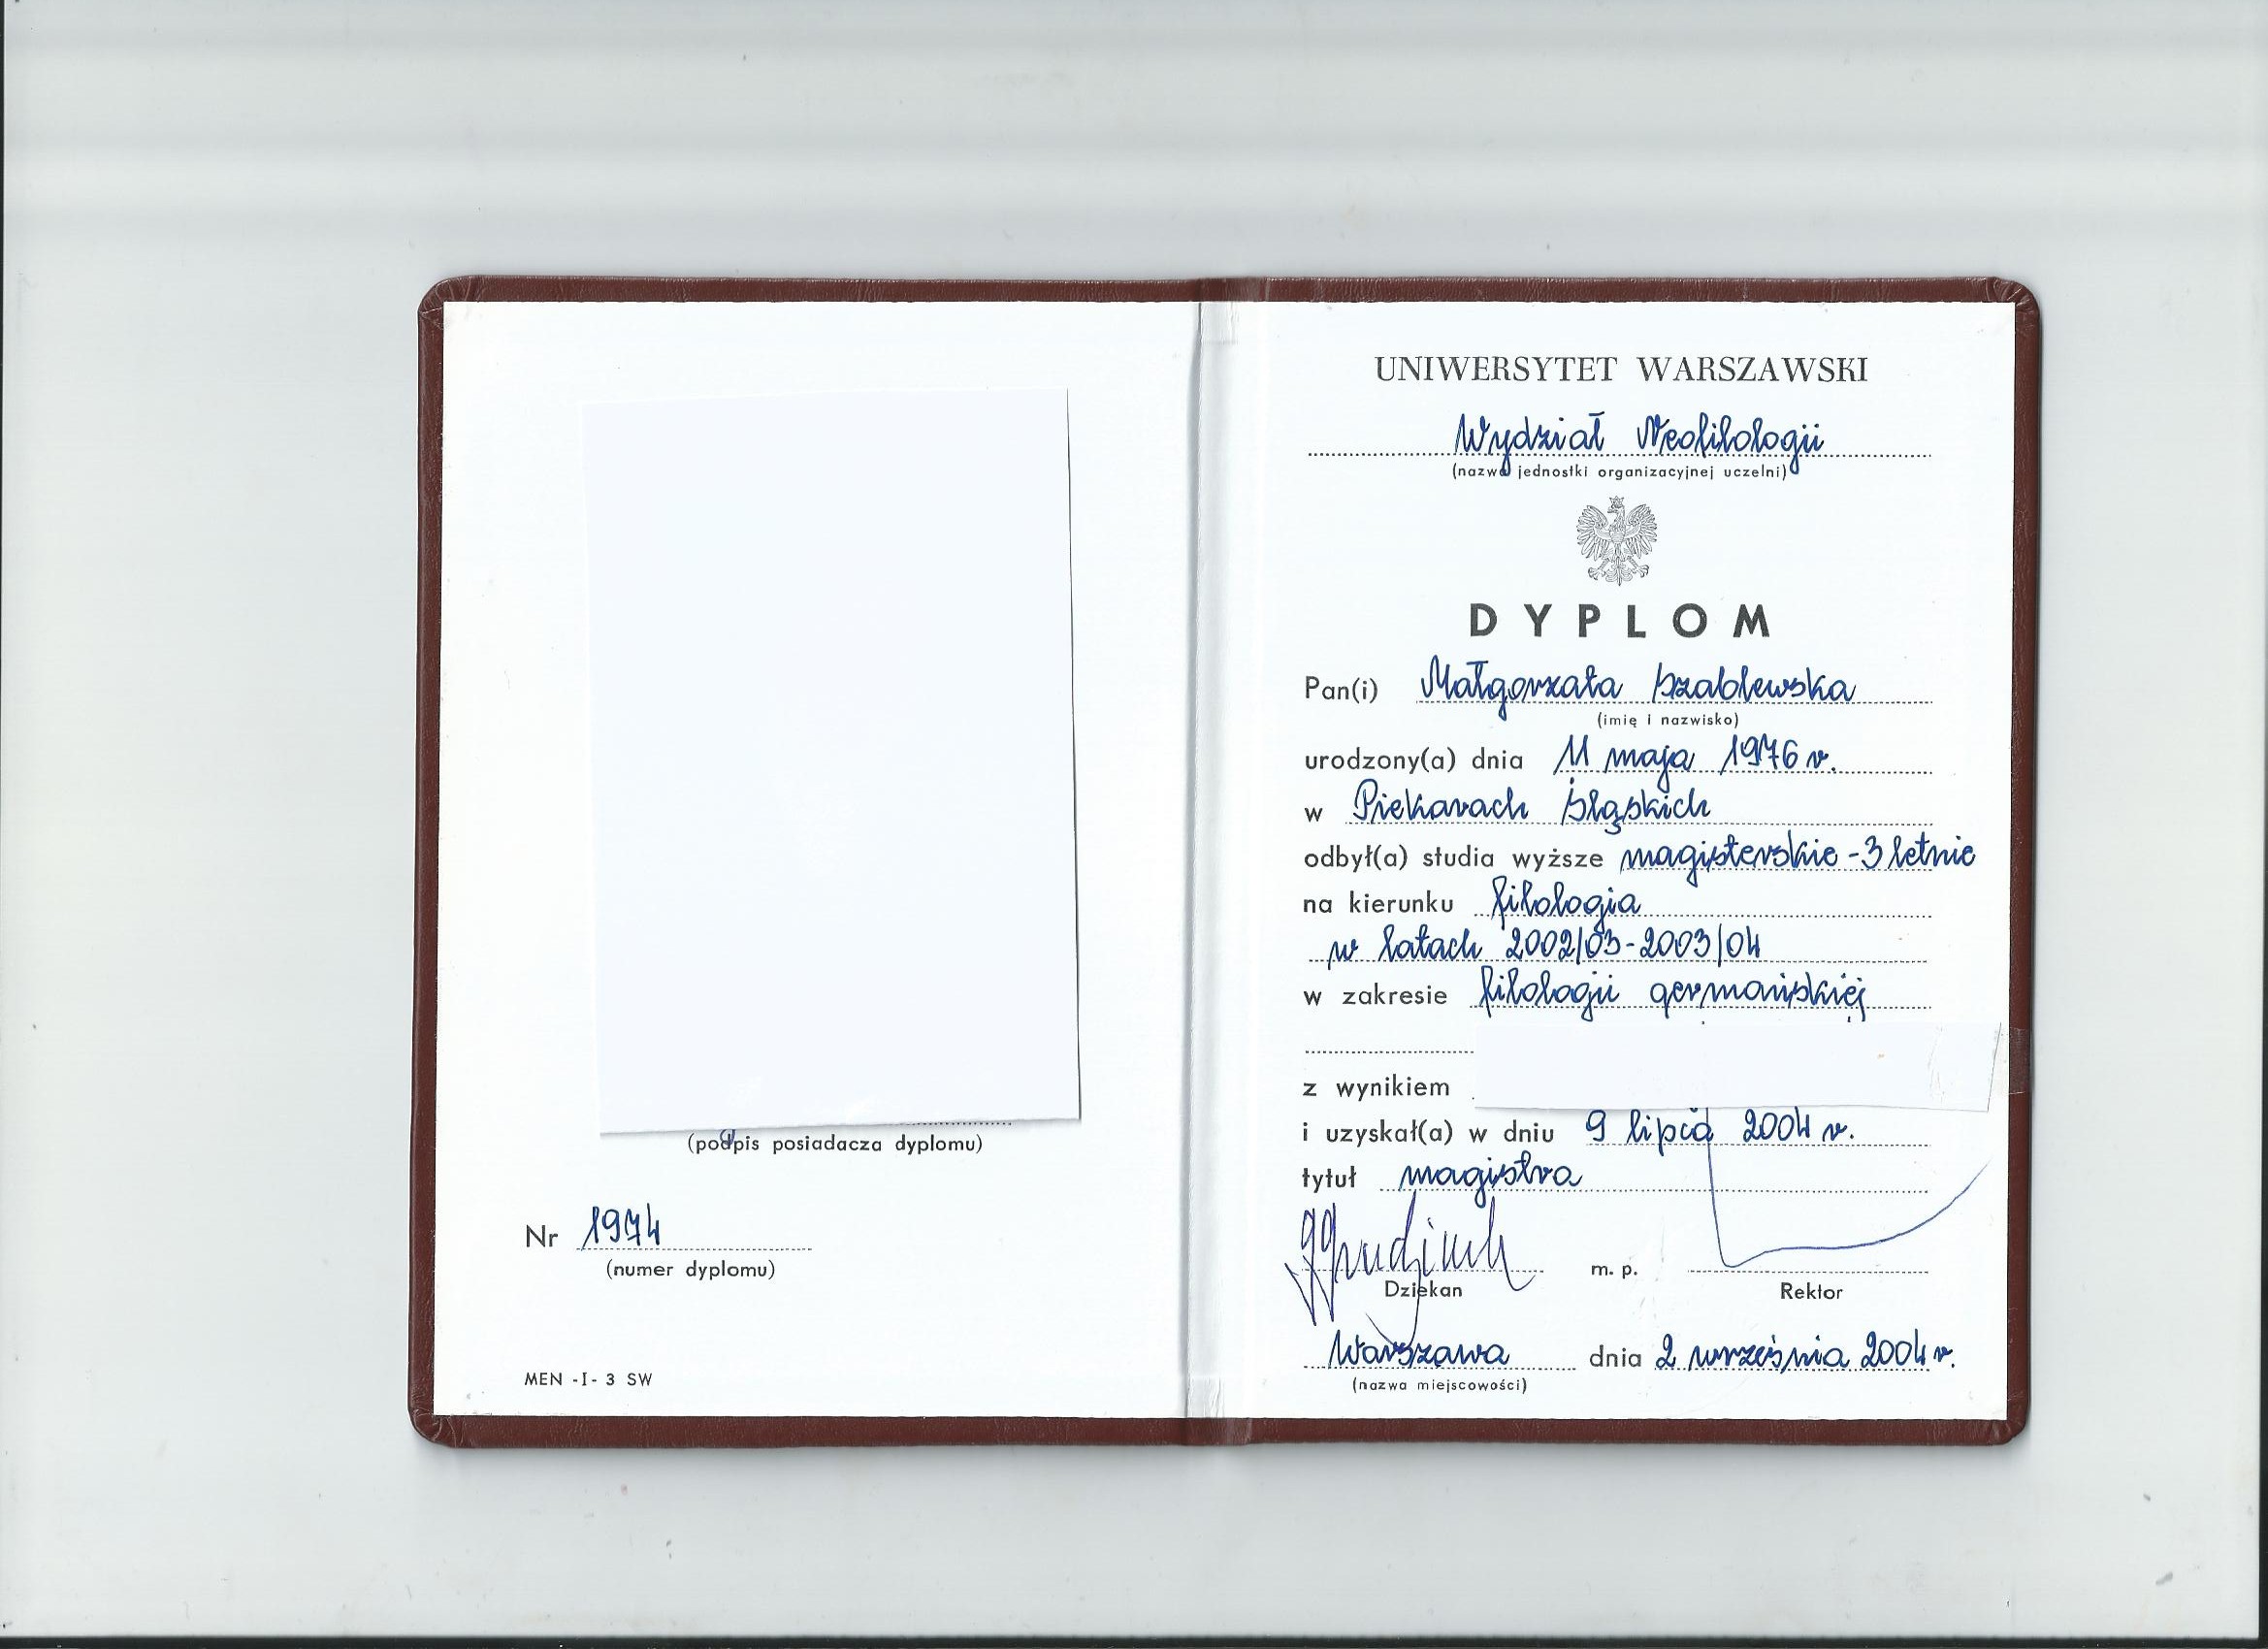 (podpis posiadacza dyplomu)
Nr 1974
(numer dyplomu)
MEN -I- 3 SW
UNIWERSYTET WARSZAWSKI
Wydział Neofilologii
(nazwa jednostki organizacyjnej uczelni)
DYPLOM
Pan(i) Małgorzata Szablewska
(imię i nazwisko)
urodzony(a) dnia 11 maja 1976 r.
w Piekarach Śląskich
odbył(a) studia wyższe magisterskie - 3 letnie
na kierunku filologia
w latach 2002/03-2003/04
w zakresie filologii germańskiej
z wynikiem
i uzyskał(a) w dniu 9 lipca 2004 r.
tytuł magistra
Dziekan m. p. Rektor
Warszawa dnia 2 września 2004 r.
(nazwa miejscowości)